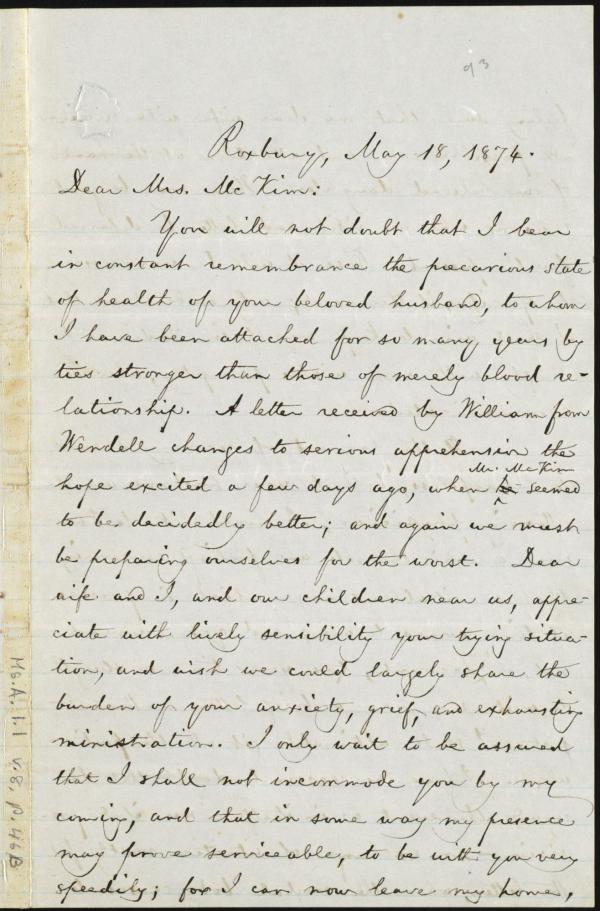 93
Roxbury, May 18, 1874.
Dear Mrs. McKim:
You will not doubt that I bear
in constant remembrance the precarious state
of health of your beloved husband, to whom
I have been attached for so many years by
ties stronger than those of merely blood re-
lationship. A letter received by William from
Wendell changes to serious apprehension the
Mr. McKim
hope excited a few days ago, when he seemed
to be decidedly better; and again we must
be preparing ourselves for the worst. Dear
wife and I, and our children near us, appre-
ciate with lively sensibility your trying situa-
tion, and wish we could largely share the
burden of your anxiety, grief, and exhausting
ministration. I only wait to be assured
that I shall not incommode you by my
coming, and that in some way my presence
may prove serviceable, to be with you very
speedily; for I can now leave my home,
Ms.A.1.1 v.8, p.46B